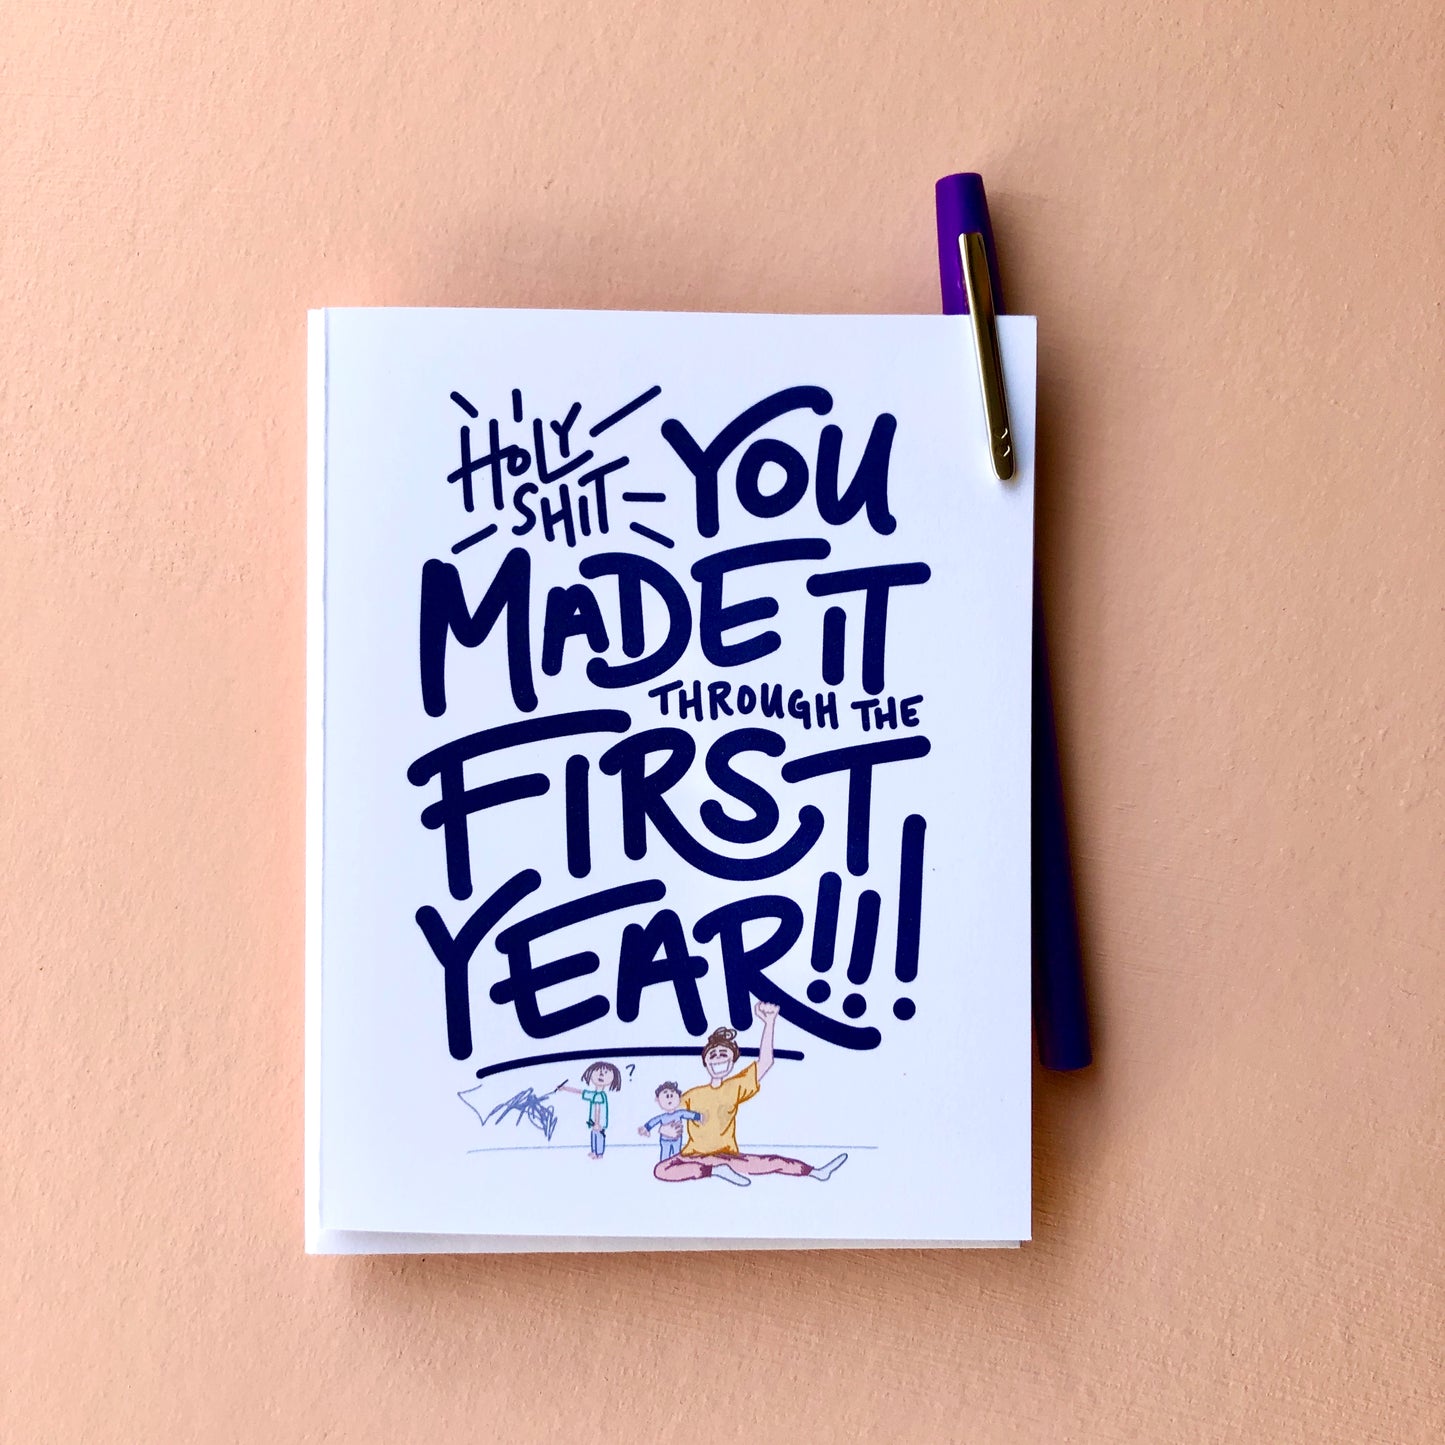 HOLY
SHIT
YOU
MADE IT
THROUGH THE
FIRST
YEAR!!!
?